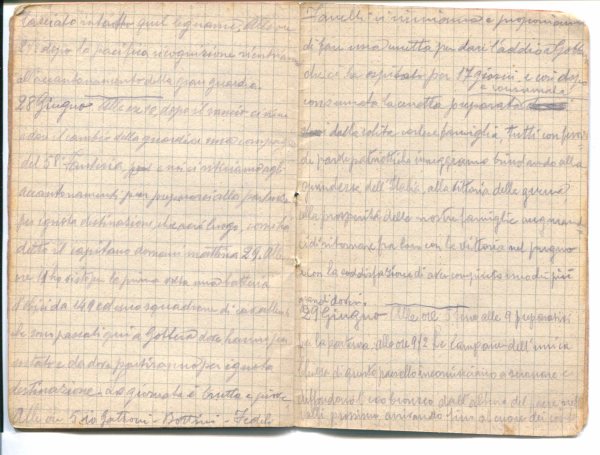 lasciato quel legname. Alle ore
8½ dopo la pacifica ricognizione rientriamo
all'accantonamento della gran guardia.
28 Giugno Alle ore 10, dopo il rancio ci viene
a dare il cambio della guardia una compagnia
del 58° Fanteria, e noi ci ritiriamo agli
accantonamenti per prepararci alla partenza
per ignota destinazione, che avrà luogo, come ha
detto il capitano domani mattina 29. Alle
ore 14 ho visto per la prima volta una batteria
d'obici da 149 ed uno squadrone di cavalleria
che sono passati qui a dove hanno per
e da dove partiranno per ignota
destinazione. La giornata è brutta e piove
Alle ore 5 io Gattoni - Bottini - Fedel
Fanelli ci riuniamo e proponiamo
di fare una per dare l'addio a
che ci ha ospitato per 17 giorni e così dopo
e consumata
consumata la preparata
dalla solita cortese famiglia, tutti con
di parole patriottiche inneggiamo brindando alla
grandezza dell'Italia, alla vittoria della guerra
alla prosperità delle nostre famiglie augurando
ci di ritornare fra loro con la vittoria nel pugno
e con la soddisfazione di aver compiuto uno dei più
grandi doveri.
29 Giugno Alle ore 5 fino alle 9 preparativi
per la partenza, alle ore 9½ le campane dell'unica
chiesa di questo paesello incominciano a suonare e
diffondono l'eco bronzeo dall'altura del paese nelle
valli prossime arrivando fino al cuore dei